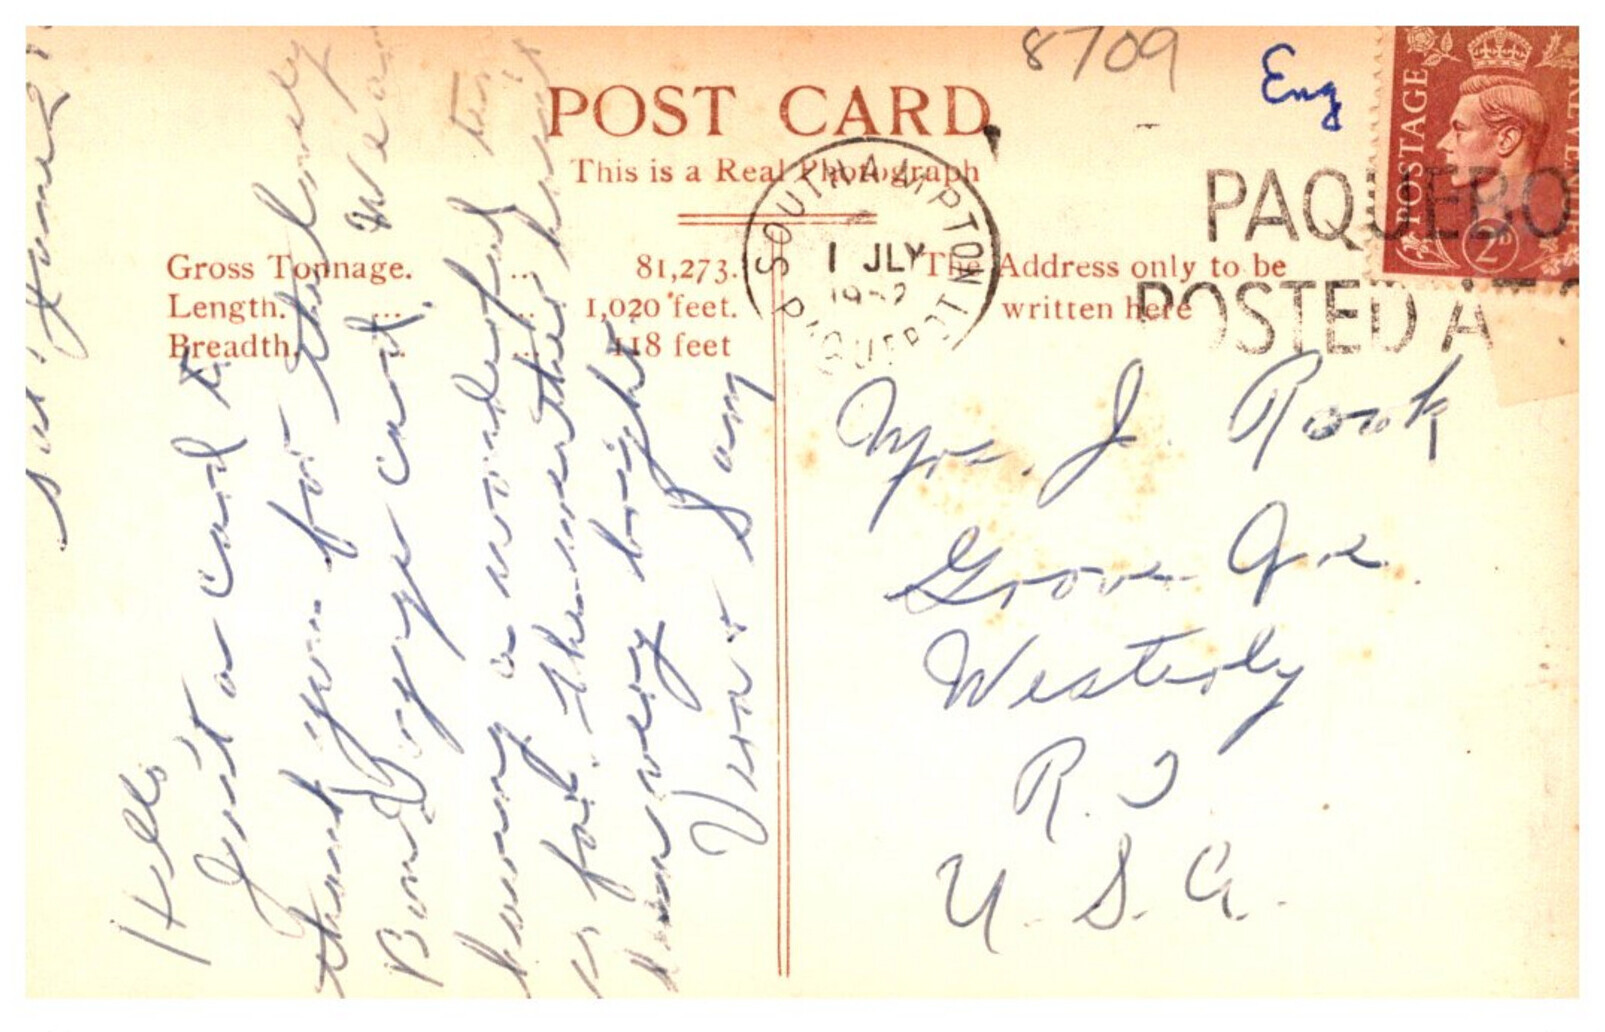 8709
Eng
POST CARD
This is a Real Photograph
Gross Tonnage. ... 81,273.
Length. ... ... 1,020 feet.
Breadth. ... ... 118 feet
The Address only to be
written here
SOUTHAMPTON
1 JLY
PAQUEBOT
PAQUEBO
POSTED AT
POSTAGE
2D
Mrs. J. Rook
Grove Ave
Westerly
R.I
U.S.A.
Hello
Just a card to
thank you for the lovely
Bon Voyage card. We are
having a wonderful trip
so far. The weather has
been very bright.
Vera & Sam